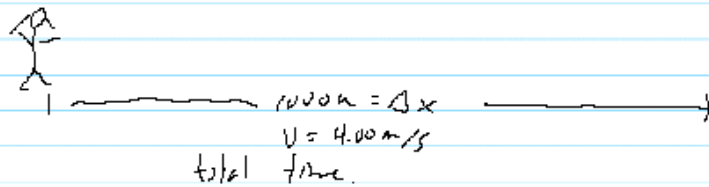 1000m = Δx
V = 4.00 m/s
total time.